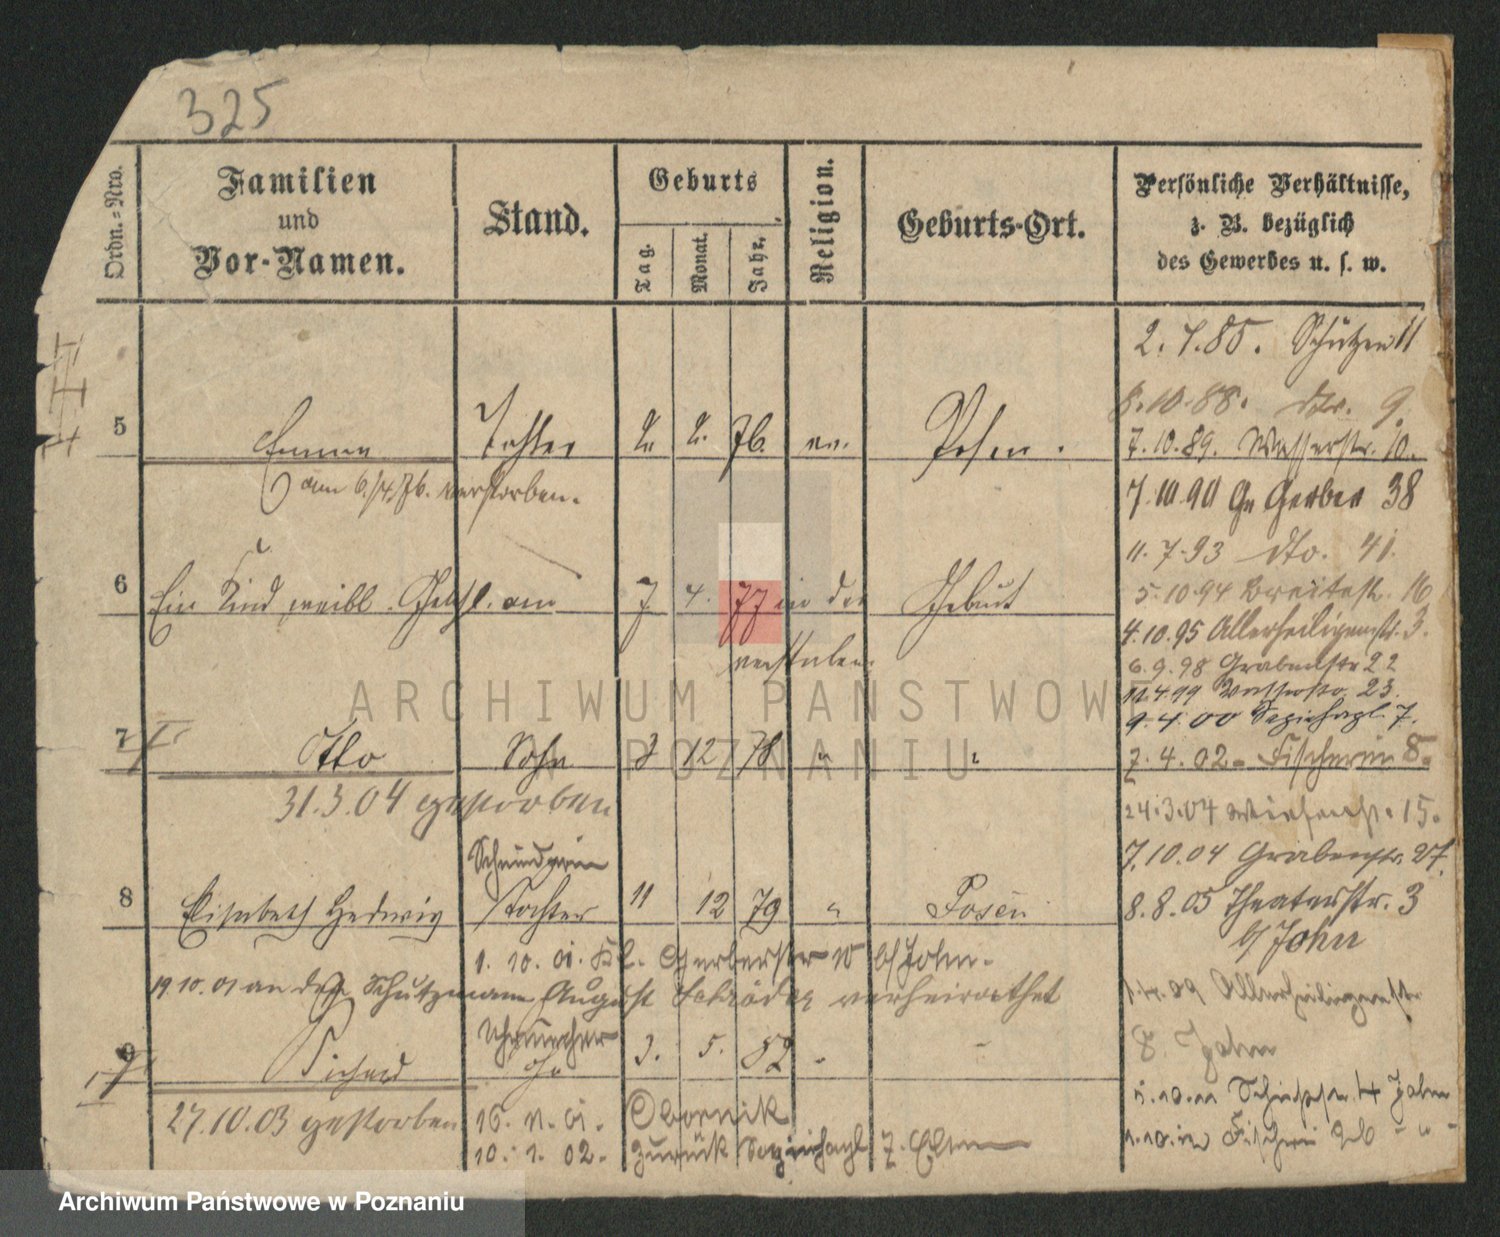 325
Ordn.-Nro.
Familien
und
Vor-Namen.
Stand.
Geburts
Tag.
Monat.
Jahr.
Religion.
Geburts-Ort.
Persönliche Verhältnisse,
z. B. bezüglich
des Gewerbes u. s. w.
2. 7. 85. Schützen 11
8.10.88. dto. 9.
5 Emma Tochter 2. 2. 76. ev. Posen.
7.10.89. Wasserstr. 10.
am 6./4. 76. verstorben.
7.10.90 Gr Gerber 38
11.7.93 dto. 41.
6 Ein Kind weibl. Geschl. am 7 4. 77 in der Geburt
verstorben.
5.10.94 Breitestr. 16
4.10.95 Allerheiligenstr. 3.
6.9.98 Grabenstr 22
11.4.99 Wasserstr. 23.
9.4.00 Sapiehapl. 7.
7 Otto Sohn 3 12 78 " "
7.4.02. Fischerei 8.
31.3.04 gestorben
24.3.04 Wiesenstr. 15.
7.10.04 Grabenstr. 27.
Schneiderin
8 Elisabeth Hedwig Tochter 11 12 79 " Posen
8.8.05 Theaterstr. 3
b/ John
1. 10. 01. Kl. Gerberstr 10 b/ John.
19.10.01 an den Schutzmann August Schröder verheirathet
1.4.09 Allerheiligenstr
8. John
9 Richard 3. 5. 82
27.10.03 gestorben
16. 11. 01. Obornik
10. 1. 02. zurück Sapiehapl 7. Eltern
5.10.11 Schiesstr. 4 John
1.10.12 Fischerei
ARCHIWUM PAŃSTWOWE
W POZNANIU
Archiwum Państwowe w Poznaniu